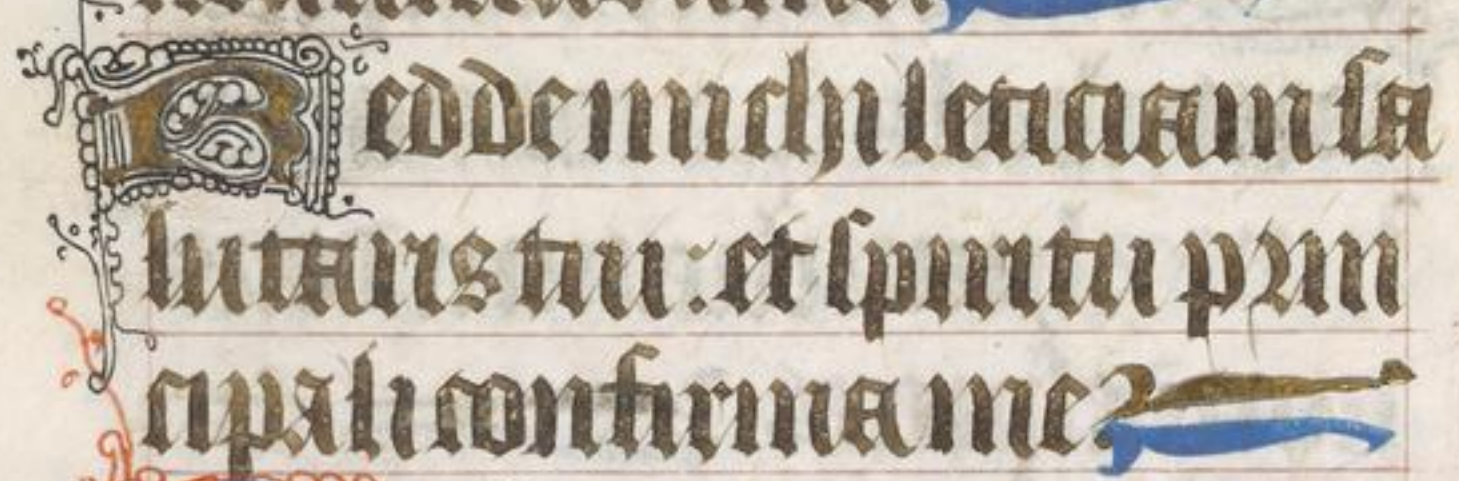 Redde michi leticiam sa
lutaris tui : et spiritu prin
cipali confirma me.